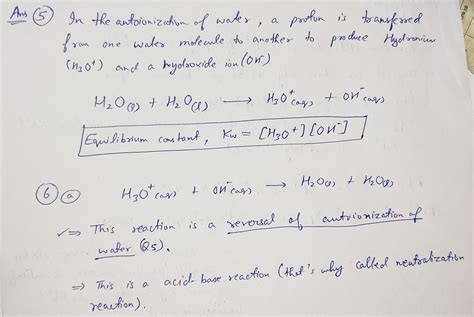 Ans (5) In the autoionization of water, a proton is transferred
from one water molecule to another to produce Hydronium
(H₃O⁺) and a hydroxide ion (OH⁻)
H₂O(l) + H₂O(l) ⟶ H₃O⁺(aq) + OH⁻(aq)
Equilibrium constant, Kw = [H₃O⁺][OH⁻]
(6) (a) H₃O⁺(aq) + OH⁻(aq) ⟶ H₂O(l) + H₂O(l)
✓⇒ This reaction is a reversal of autoionization of
water (Q5).
⇒ This is a acid-base reaction (that's why called neutralization
reaction).